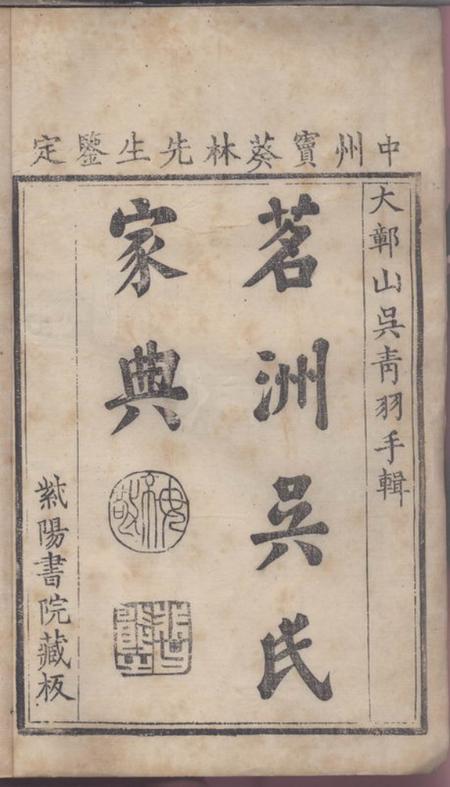 中州竇葵林先生鑒定
大鄣山吳青羽手輯
茗洲吳氏
家典
紫陽書院藏板